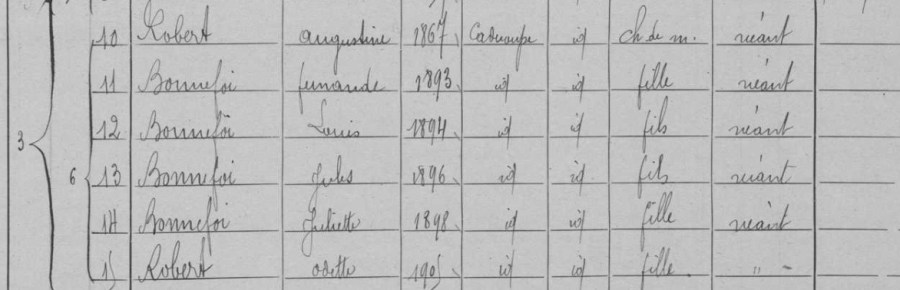 10 Robert augustine 1867 Cadouope id ch de m. néant
11 Bonnefoi fernande 1893 id id fille néant
12 Bonnefoi Louis 1894 id id fils néant
3 6 13 Bonnefoi Jules 1896 id id fils néant
14 Bonnefoi Juliette 1898 id id fille néant
15 Robert odette 1905 id id fille. " -